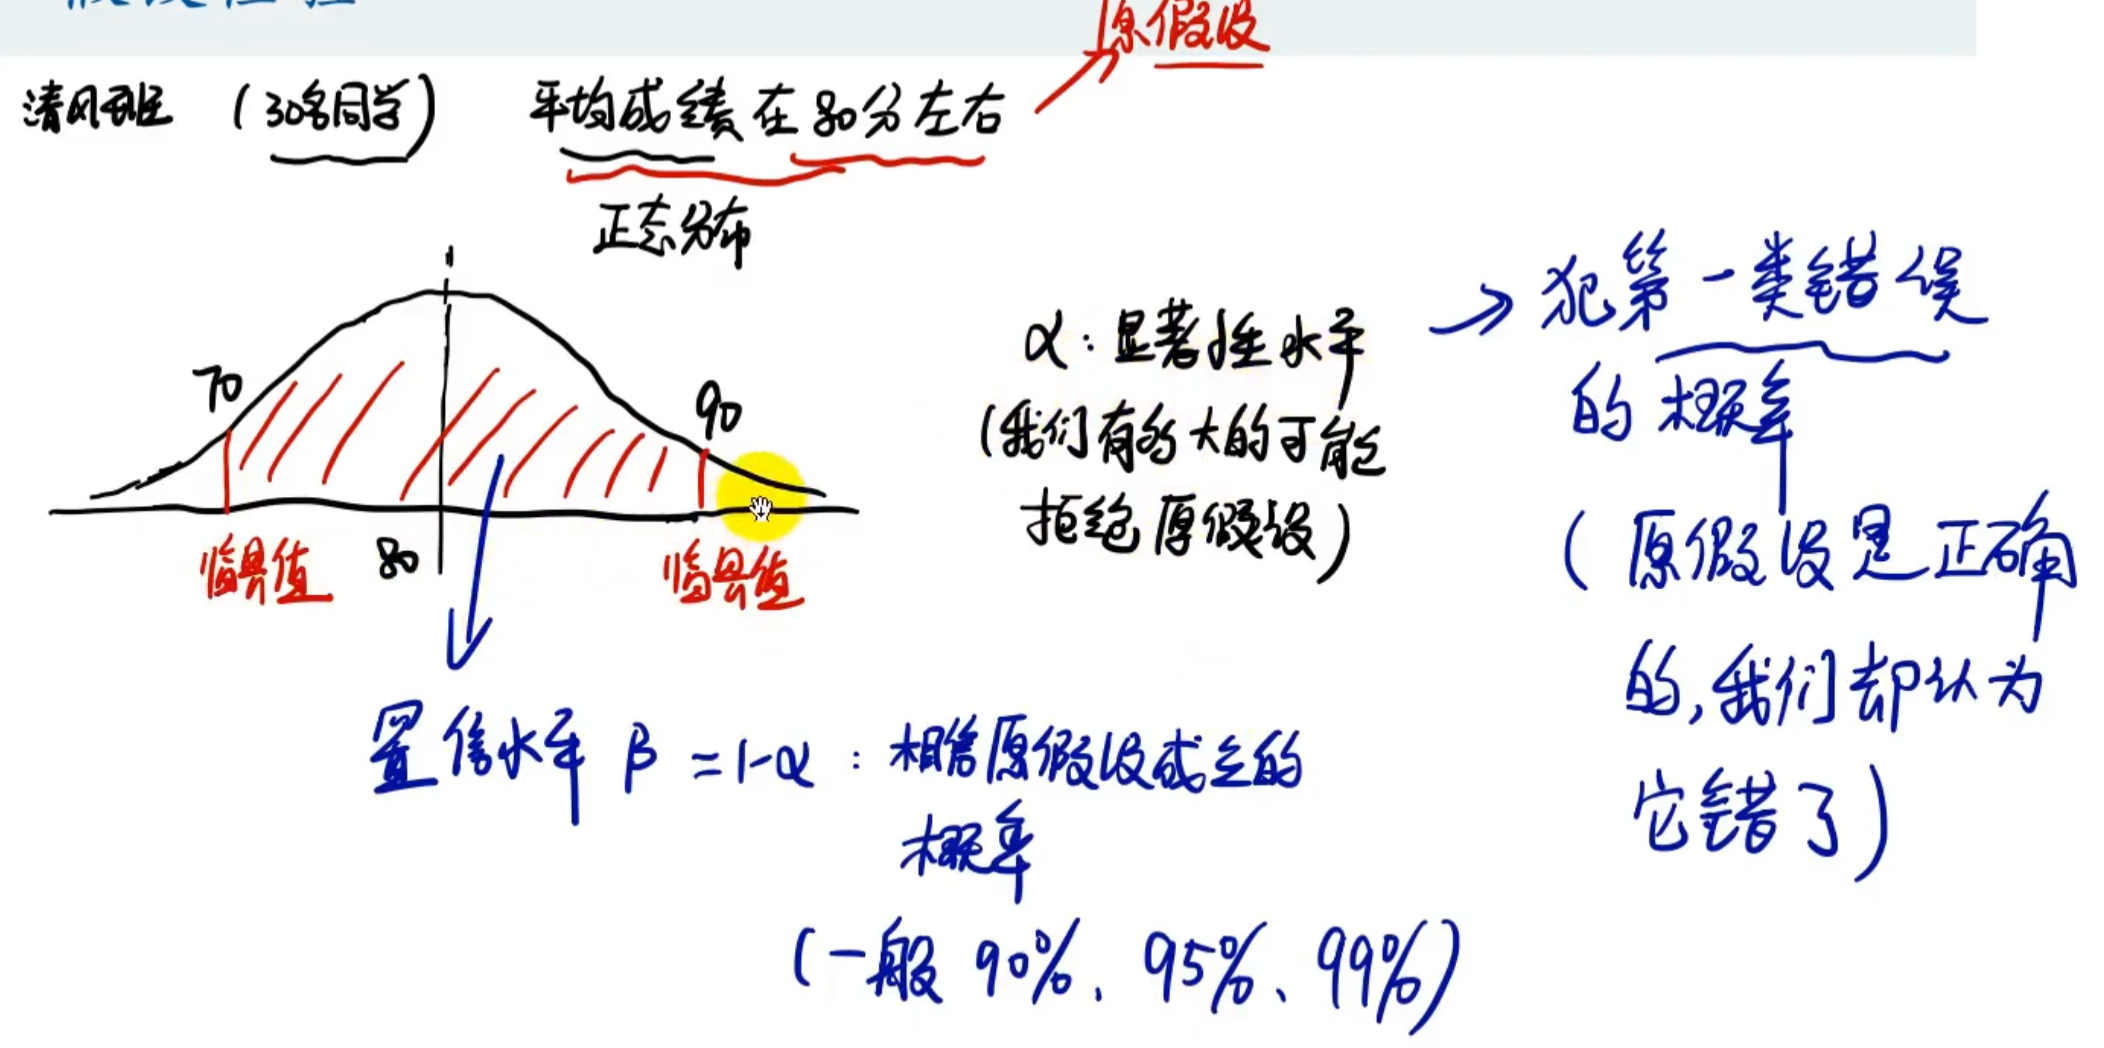 原假设
清风班 (30名同学) 平均成绩在80分左右
正态分布
70
90
80
临界值
临界值
α:显著性水平
(我们有多大的可能
拒绝原假设)
犯第一类错误
的概率
(原假设是正确
的,我们却认为
它错了)
置信水平 β =1-α : 相信原假设成立的
概率
(一般 90%、95%、99%)